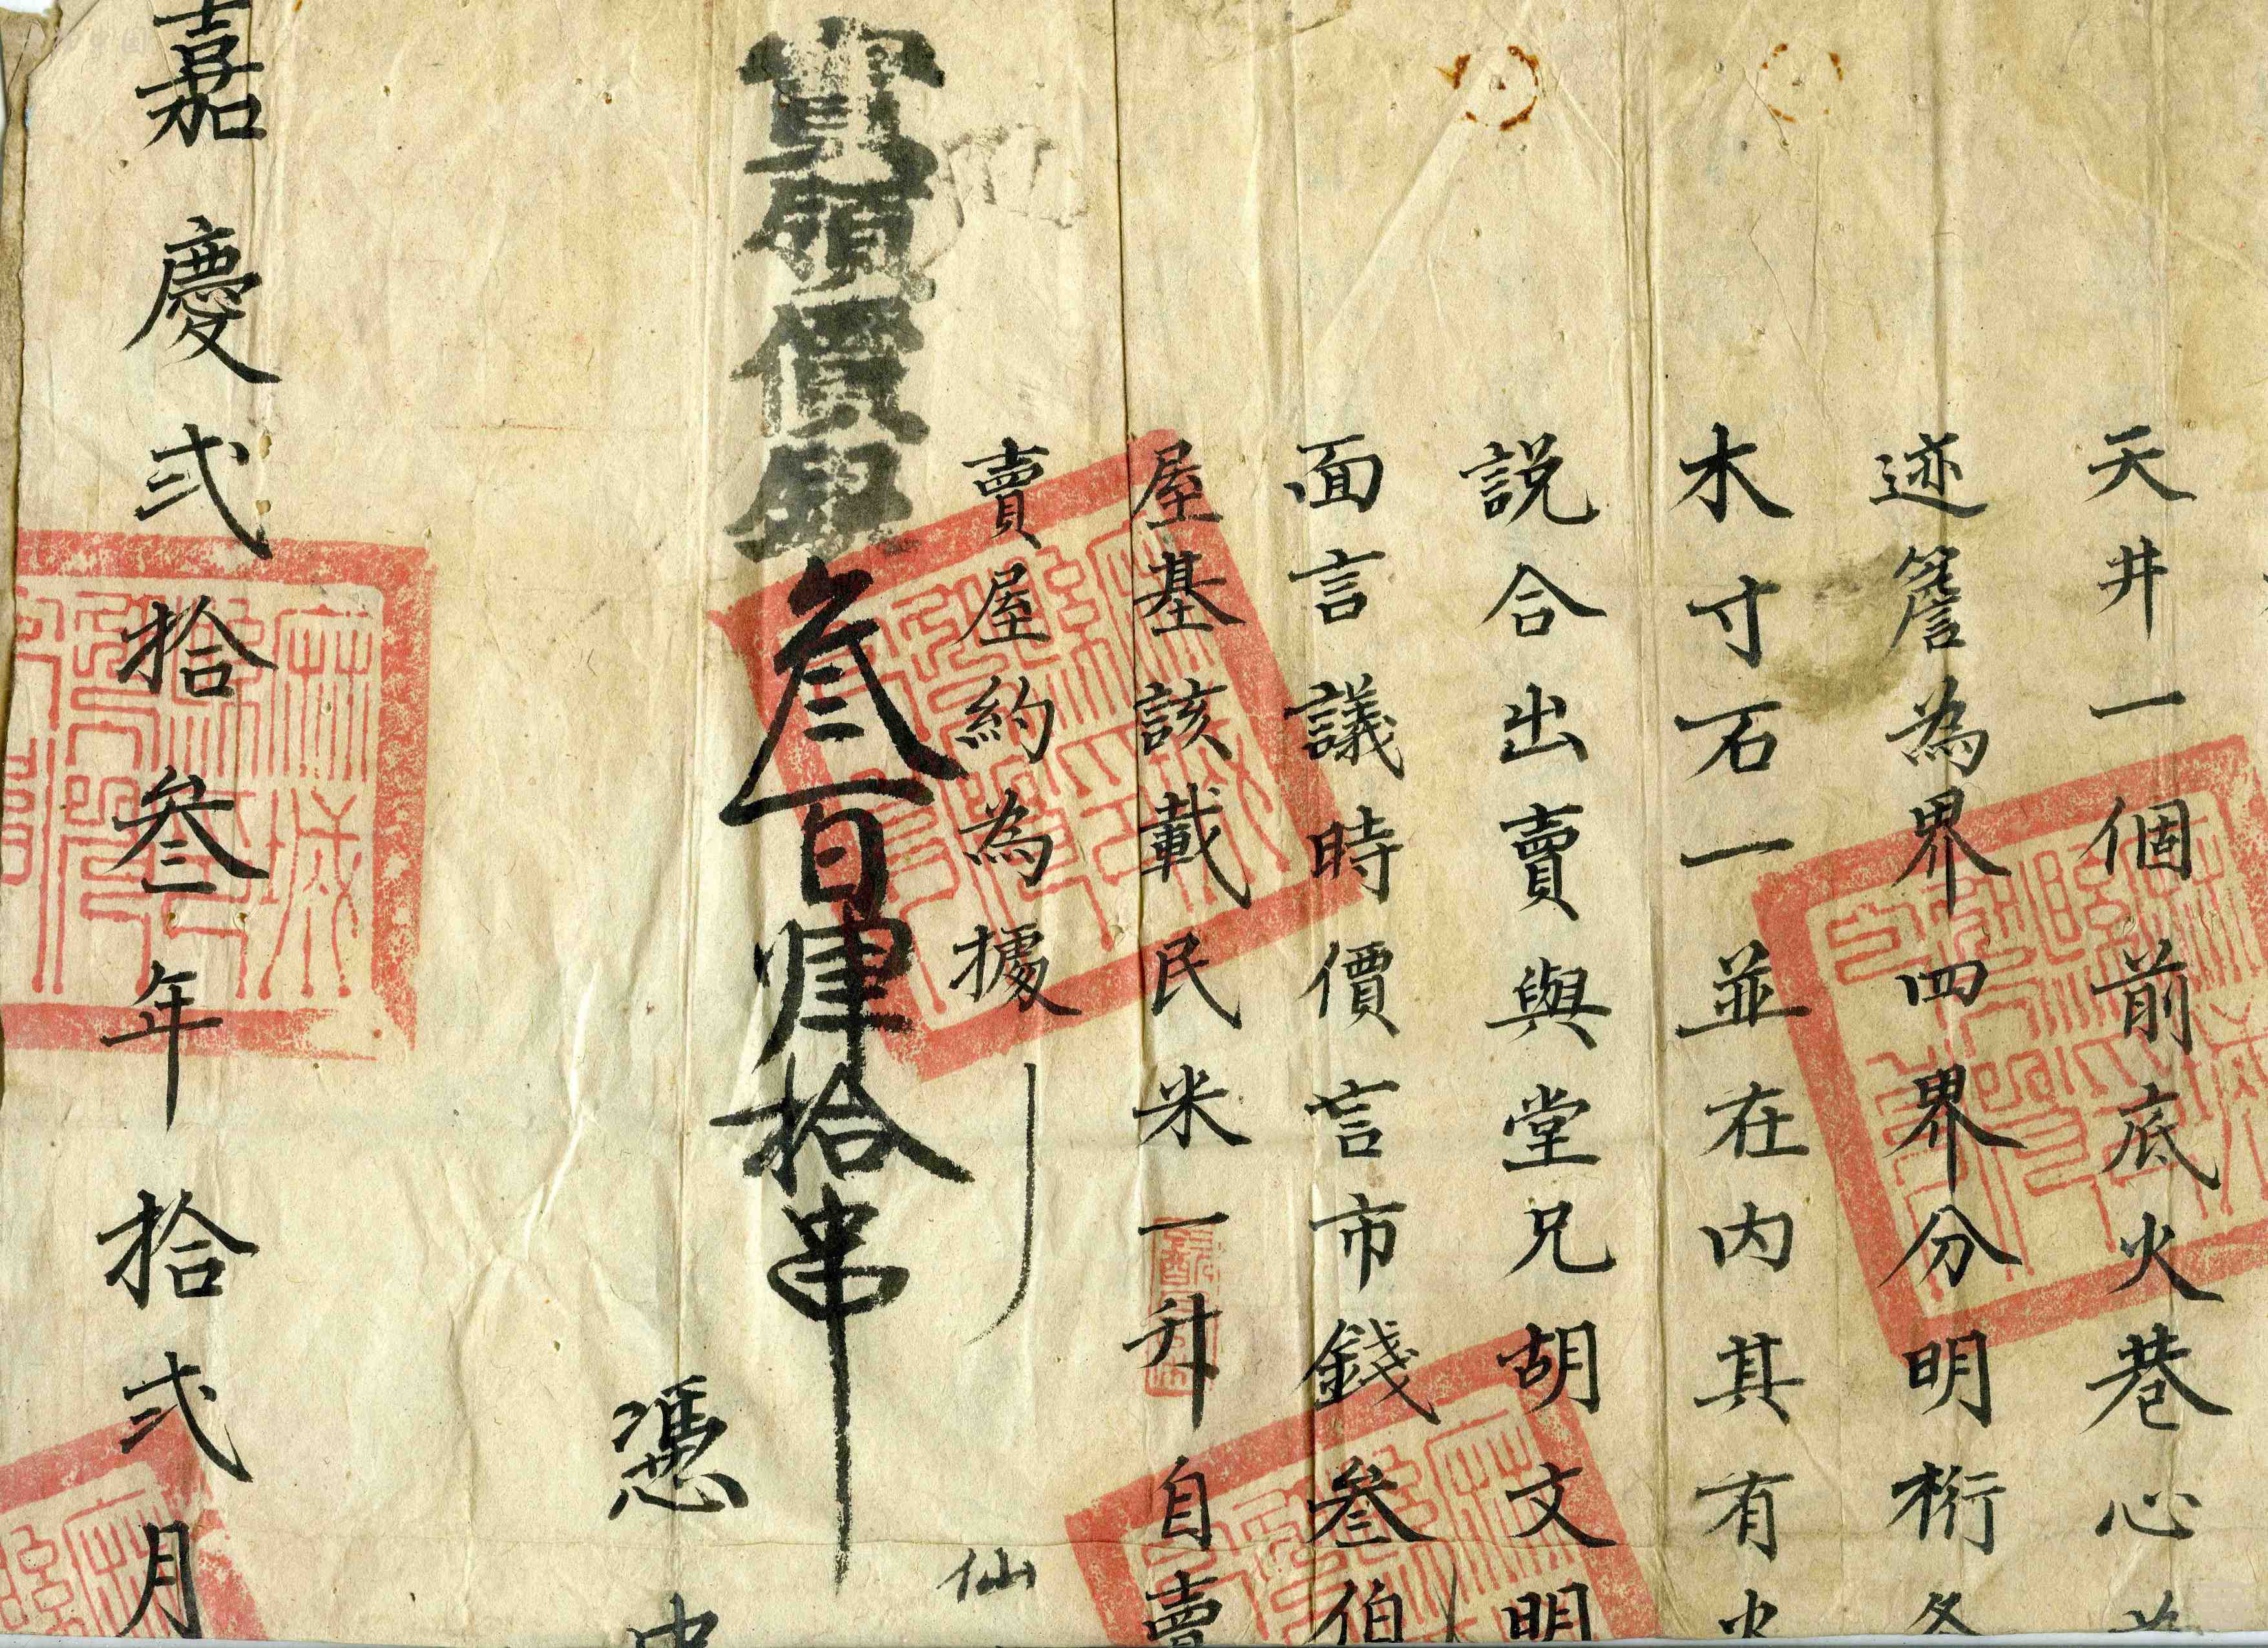 天井一個前底火巷心為
述簷為界四界分明桁各
木寸石一並在内其有
說合出賣與堂兄胡文明
面言議時價言市錢叁伯
屋基該載民米一升自賣
賣屋約為據
仙
實領價足叁百肆拾串
憑中
嘉慶弍拾叁年拾弍月